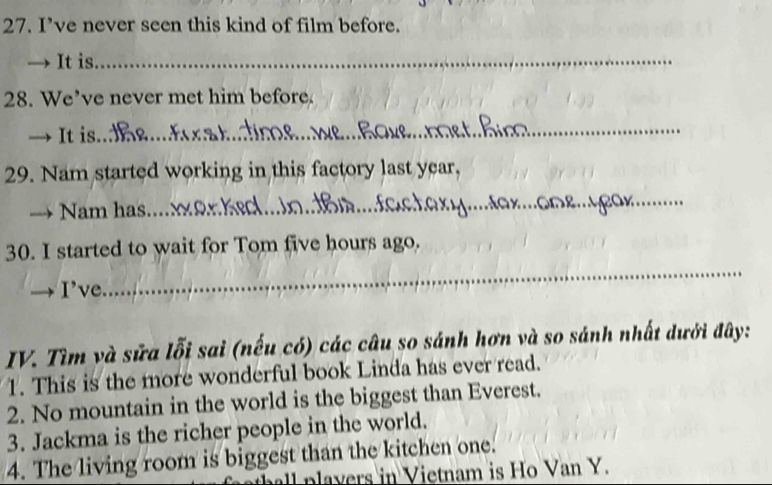 27. I've never seen this kind of film before.
→ It is....................
28. We've never met him before.
→ It is...the....first...time...we...have...met..him....................
29. Nam started working in this factory last year.
→ Nam has....worked...in..this....factory....for...one..year..........
30. I started to wait for Tom five hours ago.
→ I've....................
IV. Tìm và sửa lỗi sai (nếu có) các câu so sánh hơn và so sánh nhất dưới đây:
1. This is the more wonderful book Linda has ever read.
2. No mountain in the world is the biggest than Everest.
3. Jackma is the richer people in the world.
4. The living room is biggest than the kitchen one.
football players in Vietnam is Ho Van Y.